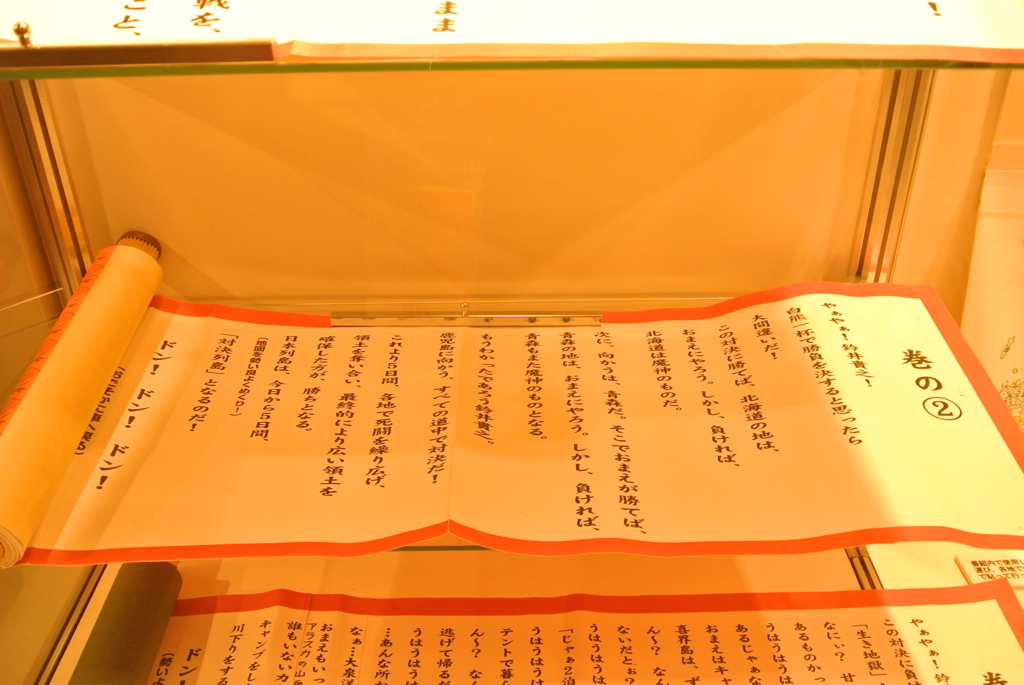 ！
まま
戦を、
こと、
巻の②
やぁやぁ！鈴井貴之！
白熊一杯で勝負を決すると思ったら
大間違いだ！
この対決に勝てば、北海道の地は、
おまえにやろう。しかし、負ければ、
北海道は魔神のものだ。
次に、向かうは、青森だ。そこでおまえが勝てば、
青森の地は、おまえにやろう。しかし、負ければ、
青森もまた魔神のものとなる。
もうわかったであろう鈴井貴之。
鹿児島に向かう、すべての道中で対決だ！
これより５日間、各地で死闘を繰り広げ、
領土を奪い合い、最終的により広い領土を
確保した方が、勝ちとなる。
日本列島は、今日から５日間、
（地図を勢い良くめくり〜）
「対決列島」となるのだ！
ドン！ドン！ドン！
番組内で使用し
運び、各地で
で貼って行っ
巻
やぁやぁ！鈴
この対決に負け
なにぃ？甘
「生き地獄」
あるものかっ
うはうはうは
あるじゃぁな
おまえはキャ
喜界島は、ず
ん〜？なん
ないだとぉ？
うはうはうは
「じゃぁ２泊
うはうはうは
テントで暮ら
ん〜？なん
逃げて帰るだ
うはうはうは
…あんな所か
なぁ…大泉洋
おまえもいっ
アラスカの山奥
誰もいないカ
キャンプをし
川下りをする
ドン！
（勢いよ